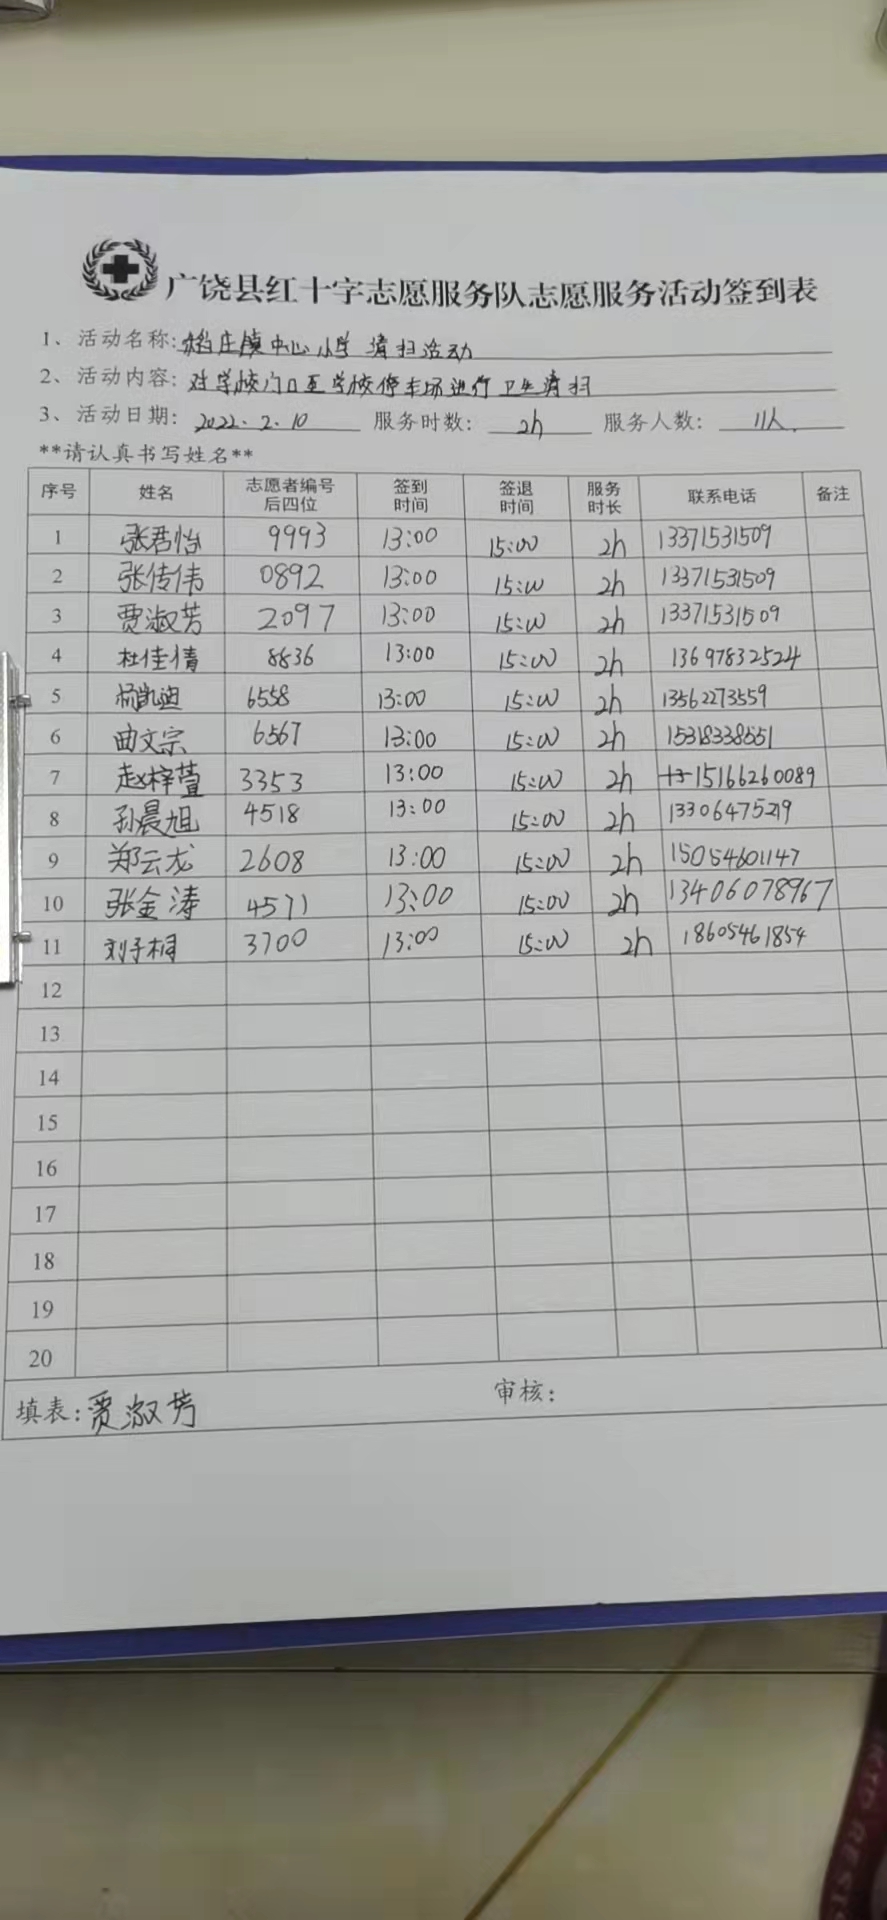 广饶县红十字志愿服务队志愿服务活动签到表
1、活动名称:稻庄镇中心小学 清扫活动
2、活动内容:对学校门口至学校停车场进行卫生清扫
3、活动日期:2022.2.10 服务时数:2h 服务人数:11人.
**请认真书写姓名**
序号 姓名 志愿者编号后四位 签到时间 签退时间 服务时长 联系电话 备注
1 张君怡 9993 13:00 15:00 2h 13371531509
2 张传伟 0892 13:00 15:00 2h 13371531509
3 贾淑芳 2097 13:00 15:00 2h 13371531509
4 杜佳倩 8836 13:00 15:00 2h 13697832524
5 杨凯迪 6558 13:00 15:00 2h 13562273559
6 曲文宗 6567 13:00 15:00 2h
7 赵梓萱 3353 13:00 15:00 2h 15166260089
8 孙晨旭 4518 13:00 15:00 2h 13306475219
9 郑云龙 2608 13:00 15:00 2h 15054601147
10 张金涛 4571 13:00 15:00 2h 13406078967
11 刘子桐 3700 13:00 15:00 2h 18605461854
12
13
14
15
16
17
18
19
20
填表:贾淑芳 审核: